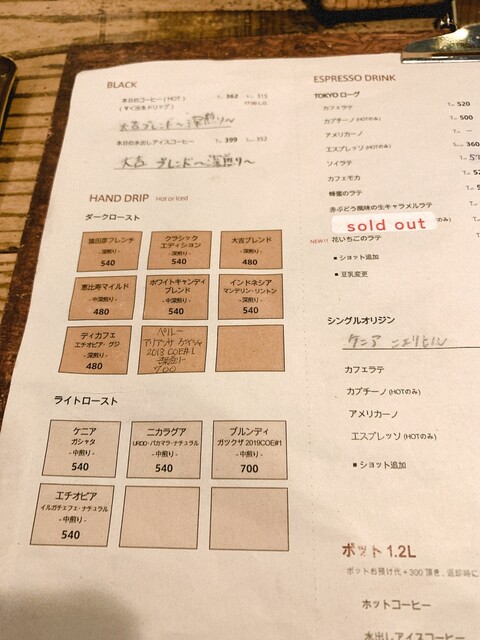 BLACK
本日のコーヒー(HOT) 362
(すぐ出るドリップ)
大吉ブレンド〜深煎り〜
本日の水出しアイスコーヒー 399 352
大吉 ブレンド〜深煎り〜
HAND DRIP Hot or Iced
ダークロースト
猿田彦フレンチ
-深煎り-
540
クラシック
エディション
-深煎り-
540
大吉ブレンド
-深煎り-
480
恵比寿マイルド
-中深煎り-
480
ホワイトキャンディ
ブレンド
-中深煎り-
540
インドネシア
マンデリン・リントン
-深煎り-
540
ディカフェ
エチオピア・グジ
-深煎り-
480
ペルー
2018 COE#1
深煎り
700
ライトロースト
ケニア
ガシャタ
-中煎り-
540
ニカラグア
-中煎り-
540
ブルンディ
ガツクザ 2019COE#1
-中煎り-
700
エチオピア
イルガチェフェ・ナチュラル
-中煎り-
540
ESPRESSO DRINK
TOKYO ローグ
カフェラテ 520
カプチーノ (HOTのみ) 500
アメリカーノ
エスプレッソ (HOTのみ) 360
ソイラテ
カフェモカ
蜂蜜のラテ
赤ぶどう風味の生キャラメルラテ
sold out のみ)
NEW!! 花いちごのラテ
■ショット追加
■豆乳変更
シングルオリジン
ケニア
カフェラテ
カプチーノ (HOTのみ)
アメリカーノ
エスプレッソ (HOTのみ)
■ショット追加
ポット 1.2L
ポットお預け代+300 頂き、返却時に
ホットコーヒー
水出しアイスコーヒー